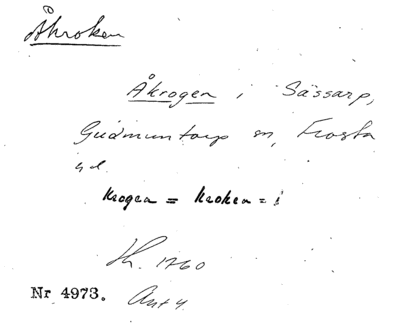 Åkroken
Åkrogen i Sässarp,
Gudmuntorp sn, Frosta
hd.
Krogen = Kroken = i
Jh. 1760
Nr 4973. Avt 4.